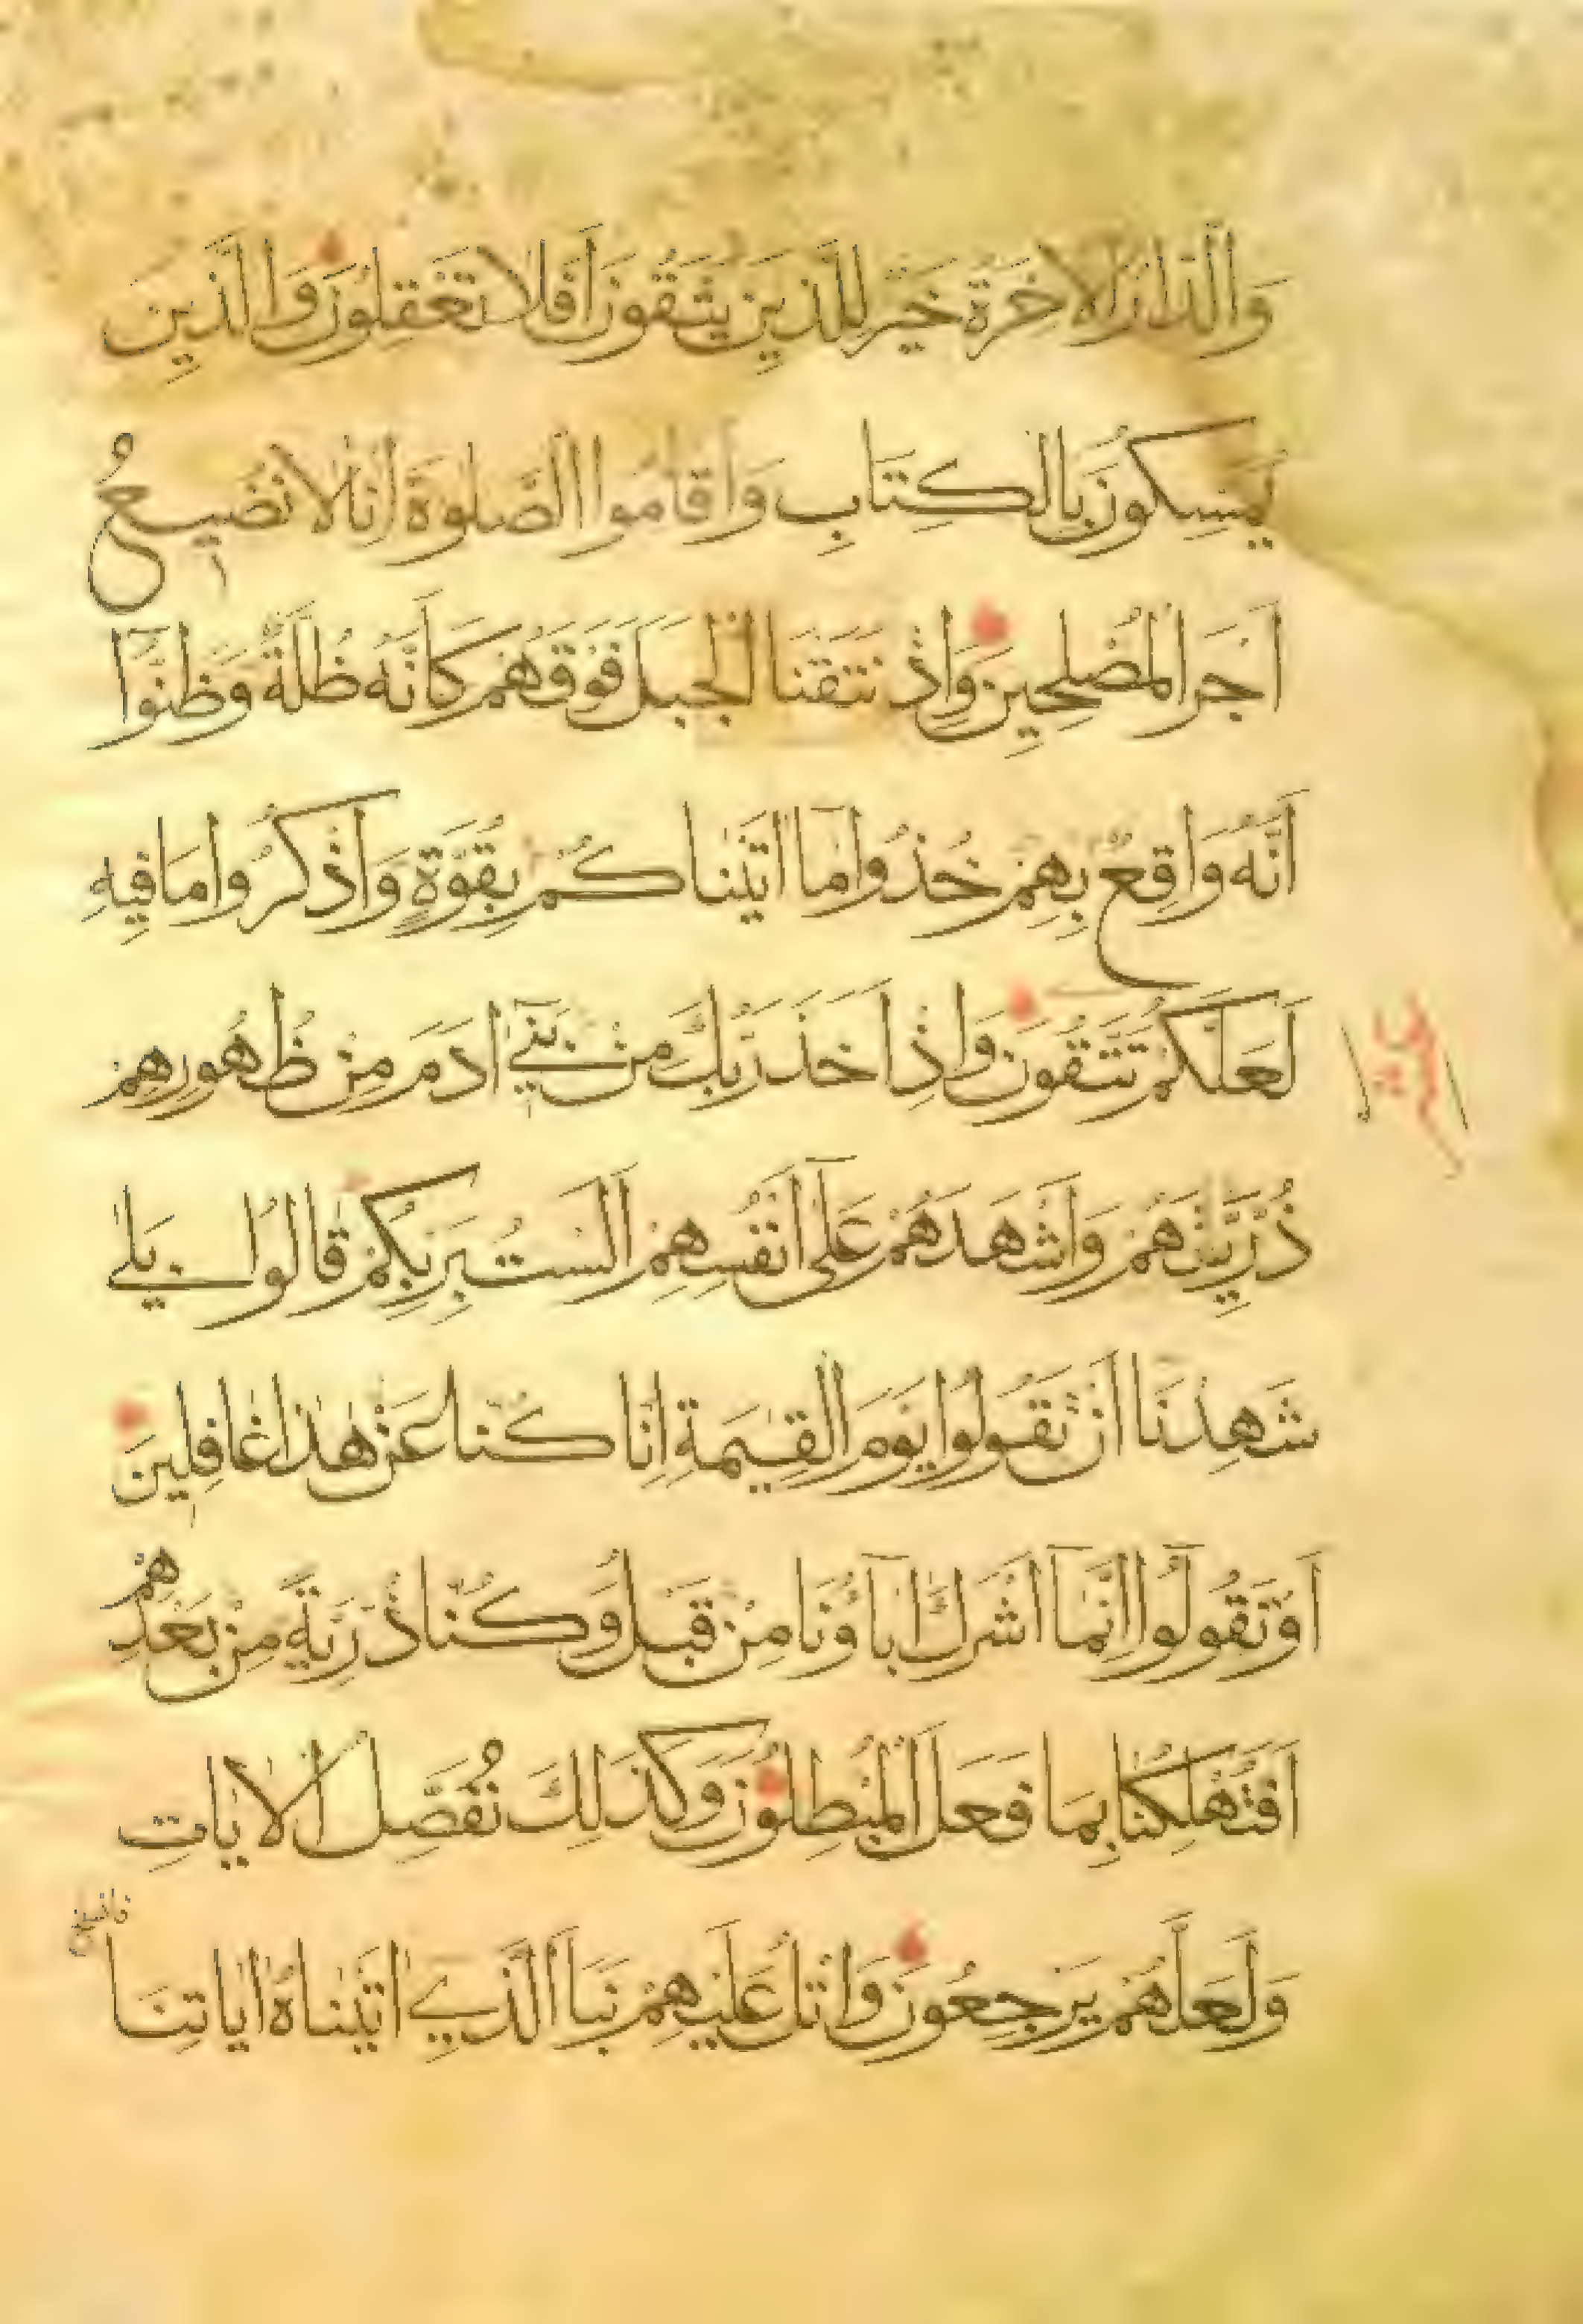 وَالدَّارُ الْاٰخِرَةُ خَيْرٌ لِلَّذِينَ يَتَّقُونَ اَفَلَا تَعْقِلُونَ وَالَّذِينَ
يُمَسِّكُونَ بِالْكِتَابِ وَاَقَامُوا الصَّلٰوةَ اِنَّا لَا نُضِيعُ
اَجْرَ الْمُصْلِحِينَ وَاِذْ نَتَقْنَا الْجَبَلَ فَوْقَهُمْ كَاَنَّهُ ظُلَّةٌ وَظَنُّوٓا
اَنَّهُ وَاقِعٌ بِهِمْ خُذُوا مَٓا اٰتَيْنَاكُمْ بِقُوَّةٍ وَاذْكُرُوا مَا فِيهِ
لَعَلَّكُمْ تَتَّقُونَ وَاِذْ اَخَذَ رَبُّكَ مِنْ بَنِيٓ اٰدَمَ مِنْ ظُهُورِهِمْ
ذُرِّيَّتَهُمْ وَاَشْهَدَهُمْ عَلٰٓى اَنْفُسِهِمْ اَلَسْتُ بِرَبِّكُمْ قَالُوا بَلٰى
شَهِدْنَا اَنْ تَقُولُوا يَوْمَ الْقِيٰمَةِ اِنَّا كُنَّا عَنْ هٰذَا غَافِلِينَ
اَوْ تَقُولُوٓا اِنَّمَٓا اَشْرَكَ اٰبَٓاؤُنَا مِنْ قَبْلُ وَكُنَّا ذُرِّيَّةً مِنْ بَعْدِهِمْ
اَفَتُهْلِكُنَا بِمَا فَعَلَ الْمُبْطِلُونَ وَكَذٰلِكَ نُفَصِّلُ الْاٰيَاتِ
وَلَعَلَّهُمْ يَرْجِعُونَ وَاتْلُ عَلَيْهِمْ نَبَاَ الَّذِيٓ اٰتَيْنَاهُ اٰيَاتِنَا
فانسلخ